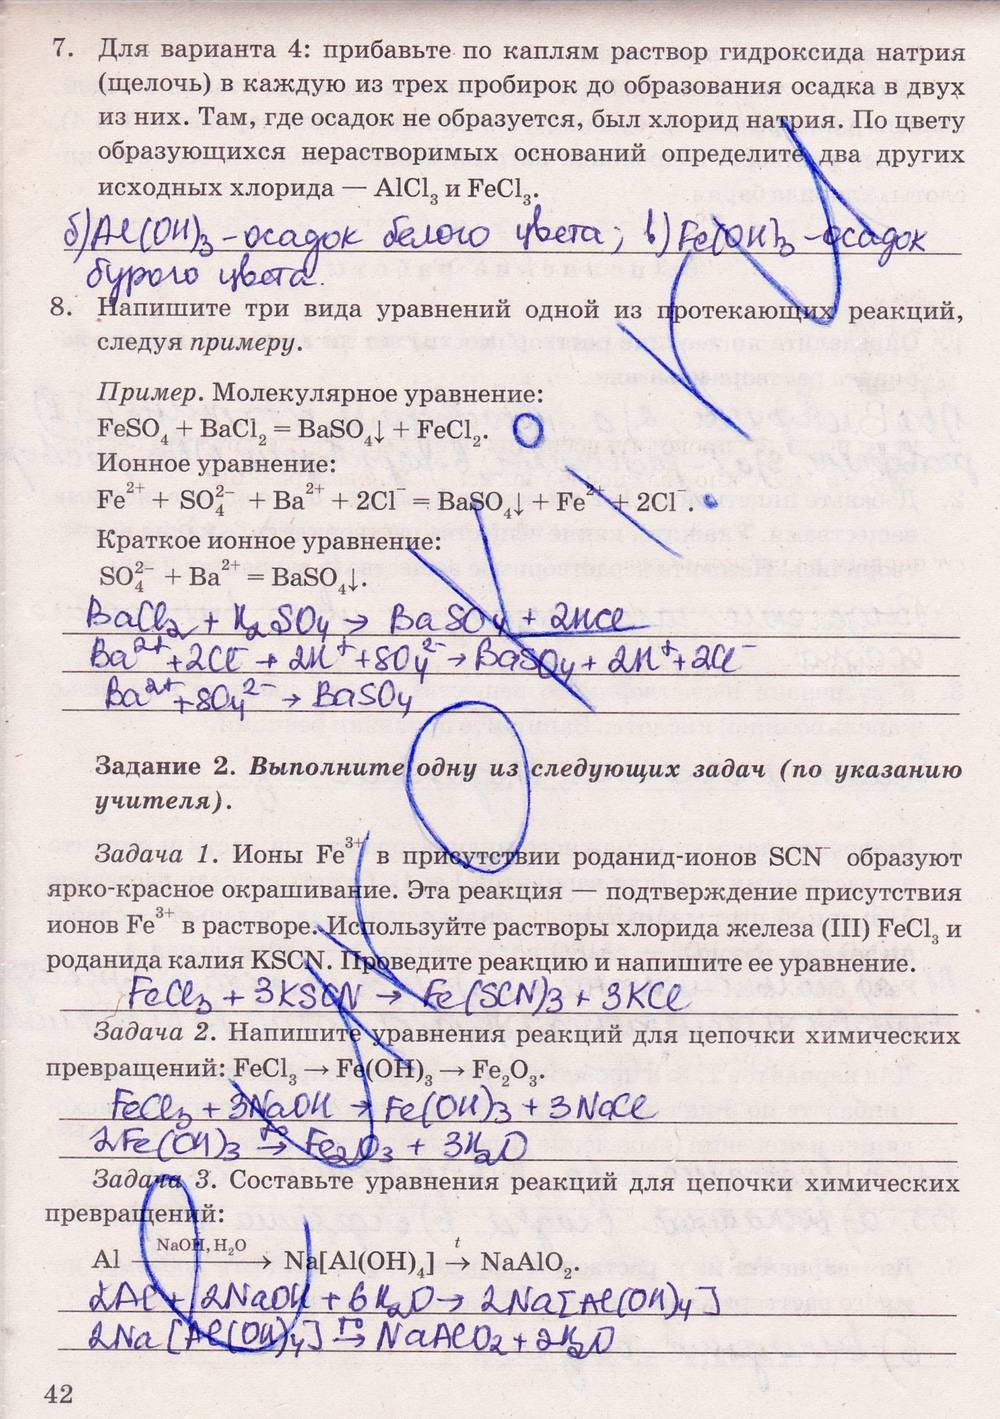 7. Для варианта 4: прибавьте по каплям раствор гидроксида натрия
(щелочь) в каждую из трех пробирок до образования осадка в двух
из них. Там, где осадок не образуется, был хлорид натрия. По цвету
образующихся нерастворимых оснований определите два других
исходных хлорида — AlCl₃ и FeCl₃.
б) Al(OH)₃ - осадок белого цвета; в) Fe(OH)₃ - осадок
бурого цвета.
8. Напишите три вида уравнений одной из протекающих реакций,
следуя примеру.
Пример. Молекулярное уравнение:
FeSO₄ + BaCl₂ = BaSO₄↓ + FeCl₂.
Ионное уравнение:
Fe²⁺ + SO₄²⁻ + Ba²⁺ + 2Cl⁻ = BaSO₄↓ + Fe²⁺ + 2Cl⁻.
Краткое ионное уравнение:
SO₄²⁻ + Ba²⁺ = BaSO₄↓.
BaCl₂ + H₂SO₄ → BaSO₄ + 2HCl
Ba²⁺ + 2Cl⁻ + 2H⁺ + SO₄²⁻ → BaSO₄ + 2H⁺ + 2Cl⁻
Ba²⁺ + SO₄²⁻ → BaSO₄
Задание 2. Выполните одну из следующих задач (по указанию
учителя).
Задача 1. Ионы Fe³⁺ в присутствии роданид-ионов SCN⁻ образуют
ярко-красное окрашивание. Эта реакция — подтверждение присутствия
ионов Fe³⁺ в растворе. Используйте растворы хлорида железа (III) FeCl₃ и
роданида калия KSCN. Проведите реакцию и напишите ее уравнение.
FeCl₃ + 3KSCN → Fe(SCN)₃ + 3KCl
Задача 2. Напишите уравнения реакций для цепочки химических
превращений: FeCl₃ → Fe(OH)₃ → Fe₂O₃.
FeCl₃ + 3NaOH → Fe(OH)₃ + 3NaCl
2Fe(OH)₃ t°→ Fe₂O₃ + 3H₂O
Задача 3. Составьте уравнения реакций для цепочки химических
превращений:
Al NaOH, H₂O→ Na[Al(OH)₄] t→ NaAlO₂.
2Al + 2NaOH + 6H₂O → 2Na[Al(OH)₄]
2Na[Al(OH)₄] t°→ NaAlO₂ + 2H₂O
42